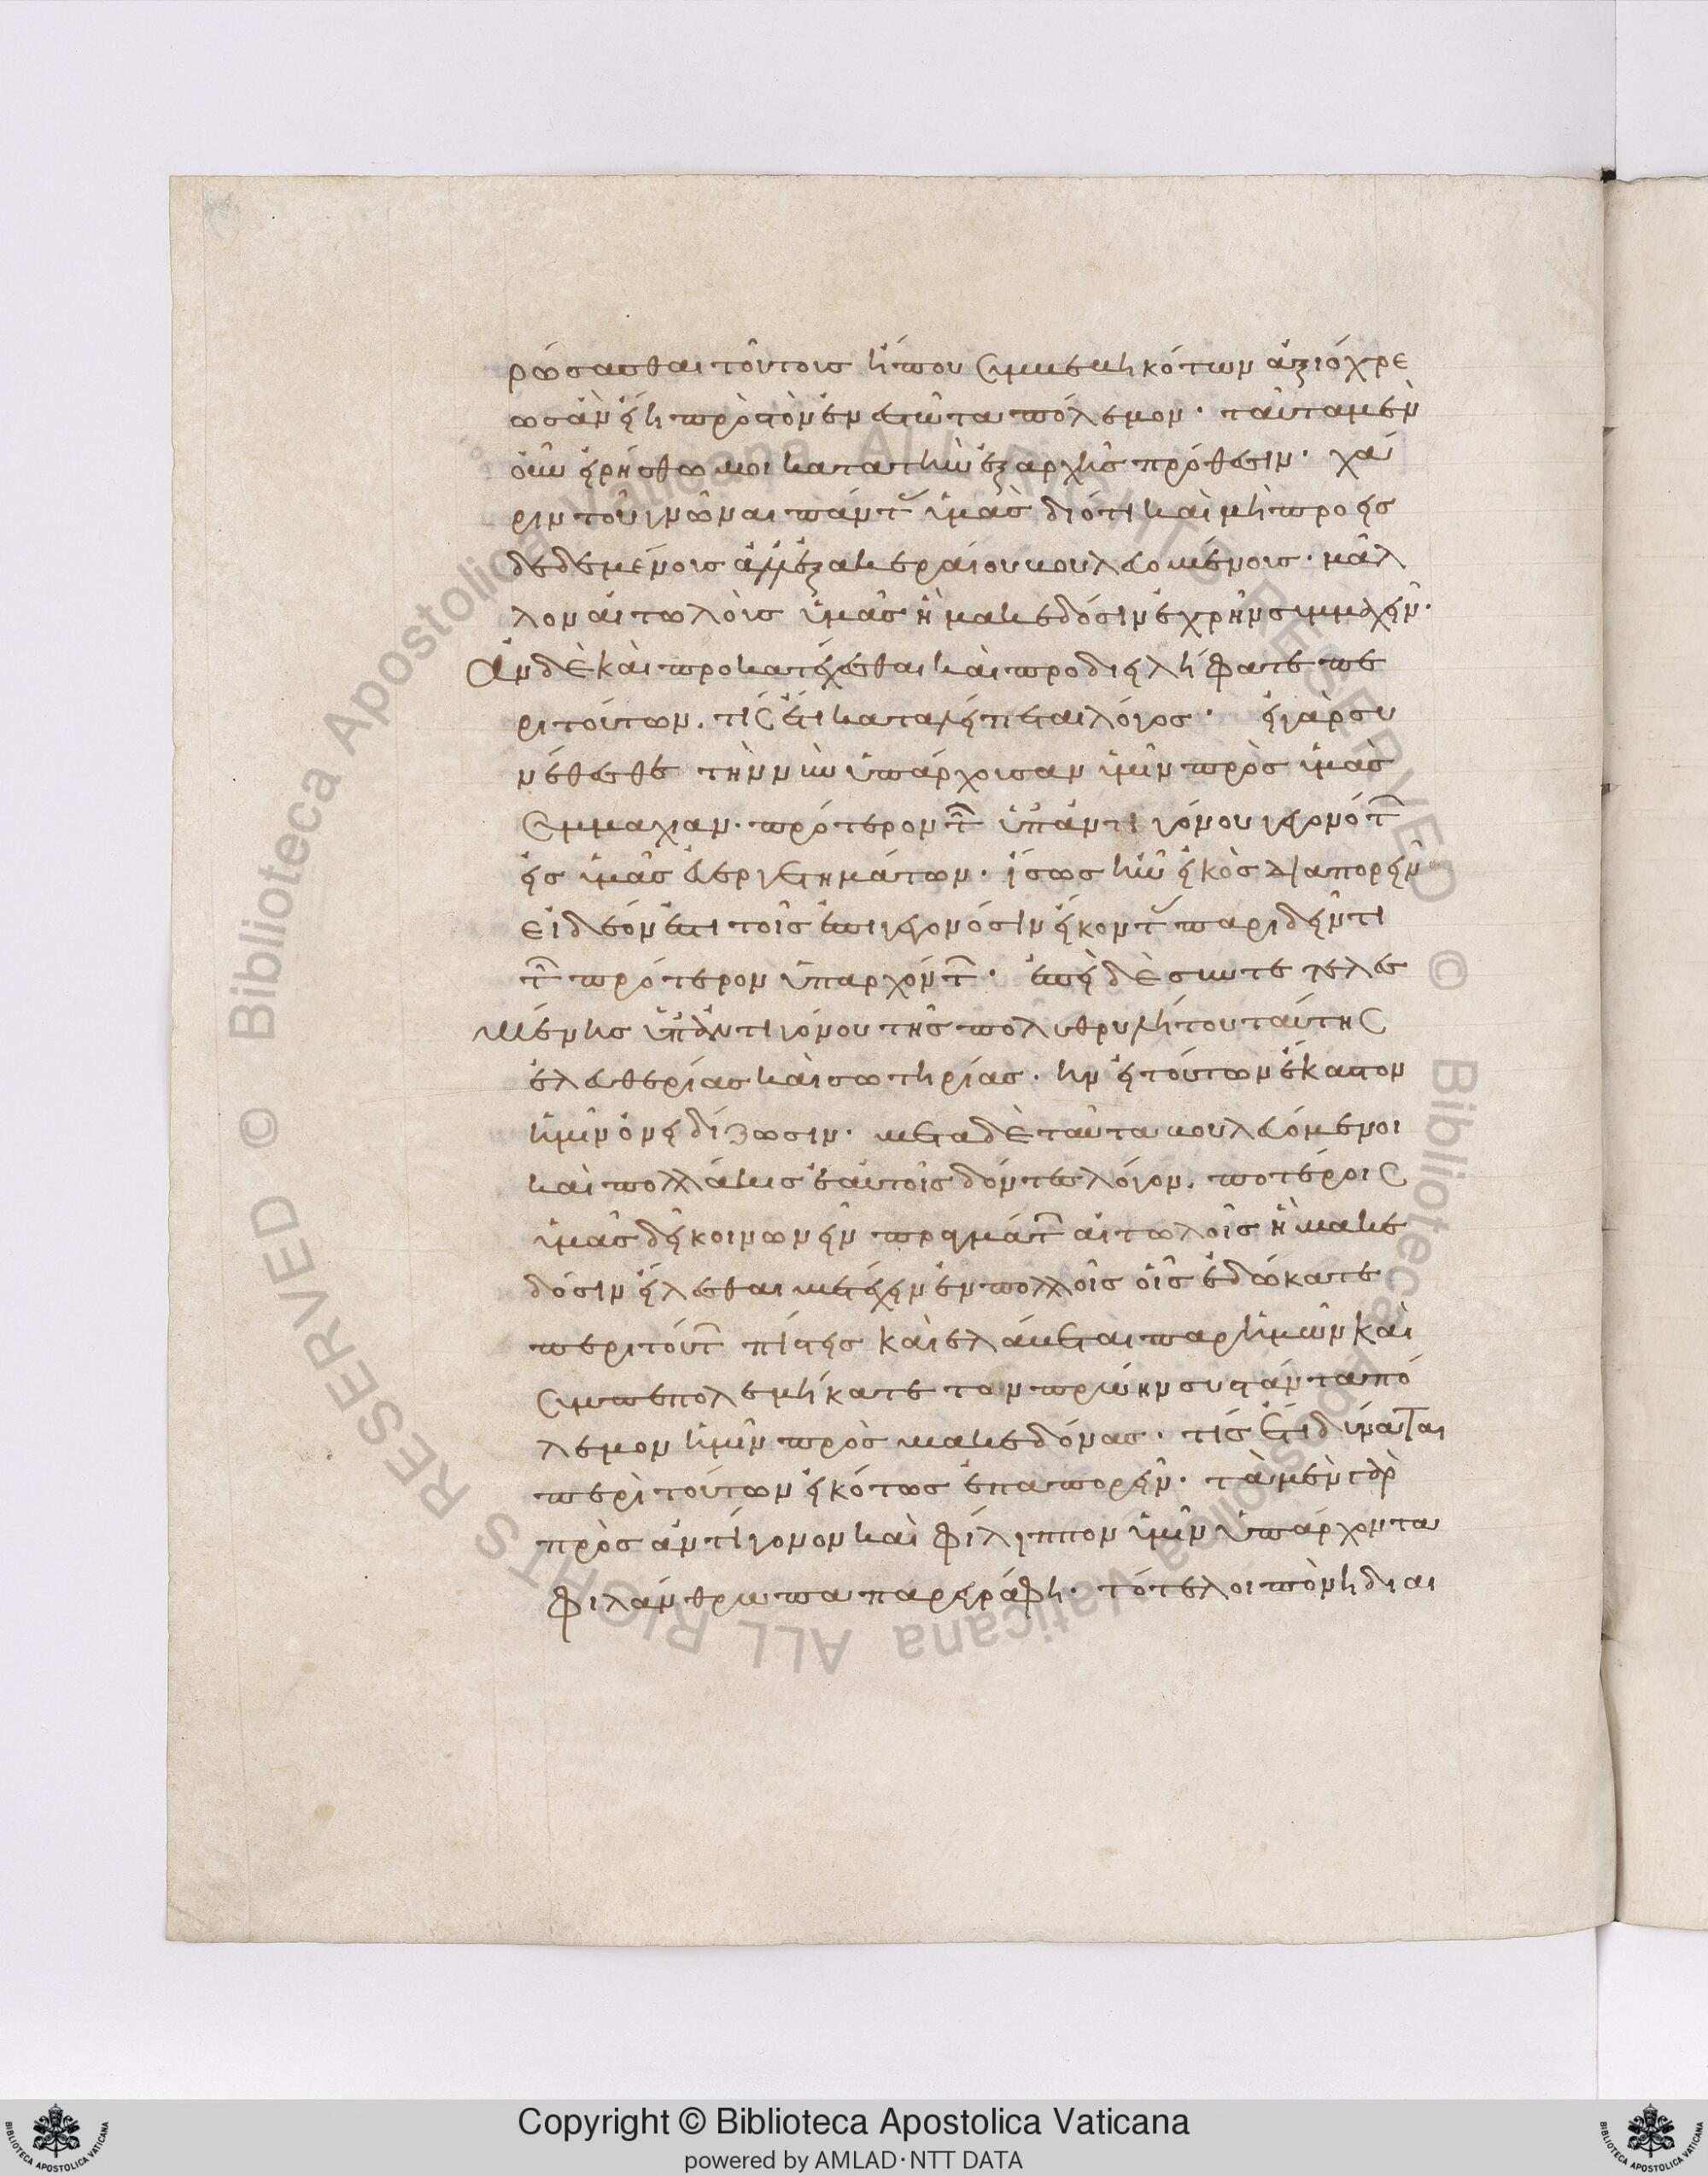 ρώσασθαι τούτοις ἤ που συμβεβηκότων ἀξιόχρε
ως ἂν εἴη πρὸς τὸν ἐνεστῶτα πόλεμον· ταῦτα μὲν
οὖν εἰρήσθω μοι κατὰ τὴν ἐξ ἀρχῆς πρόθεσιν· χά
ριν τοῦ γνῶναι πάντας ὑμᾶς διότι καὶ μὴ προσ
δεδεμένοις ἀλλ' ἐξ ἀκεραίου βουλευομένοις· μᾶλ
λον αἰτωλοῖς ὑμᾶς ἢ μακεδόσιν ἐχρῆν συμμαχεῖν·
Ἂν δὲ καὶ προκατέχεσθαι καὶ προδιειλήφατε πε
ρὶ τούτων, τίς ἔτι καταλείπεται λόγος· εἰ γὰρ συ
νέθεσθε τὴν νῦν ὑπάρχουσαν ὑμῖν πρὸς ἡμᾶς
συμμαχίαν· πρότερον τῶν ὑπ' ἀντιγόνου γεγονότων
εἰς ὑμᾶς εὐεργετημάτων· ἴσως ἦν εἰκὸς διαπορεῖν
εἰ δέον ἐστὶ τοῖς ἐπιγεγονόσιν εἴκοντας παριδεῖν τι
τῶν πρότερον ὑπαρχόντων· ἐπεὶ δὲ συντετελεσ
μένης ὑπ' ἀντιγόνου τῆς πολυθρυλήτου ταύτης
ἐλευθερίας καὶ σωτηρίας· ἣν εἰ τούτων ἕκαστον
ἡμῖν ὀνειδίζωσιν· μετὰ δὲ ταῦτα βουλευόμενοι
καὶ πολλάκις ἑαυτοῖς δόντες λόγον, ποτέροις
ὑμᾶς δεῖ κοινωνεῖν πραγμάτων αἰτωλοῖς ἢ μακε
δόσιν εἵλεσθαι μετέχειν ἐν πολλοῖς οἷς ἐδώκατε
περὶ τούτων πίστεις καὶ ἐλάβεται παρ' ἡμῶν καὶ
συμπεπολεμήκατε τὸν πρώην συστάντα πό
λεμον ἡμῖν πρὸς μακεδόνας· τίς ἔτι δύναται
περὶ τούτων εἰκότως ἐπαπορεῖν· τὰ μὲν γὰρ
πρὸς ἀντίγονον καὶ φίλιππον ὑμῖν ὑπάρχοντα
φιλάνθρωπα παρεγράφη· τότε λοιπὸν ἢ δι αι